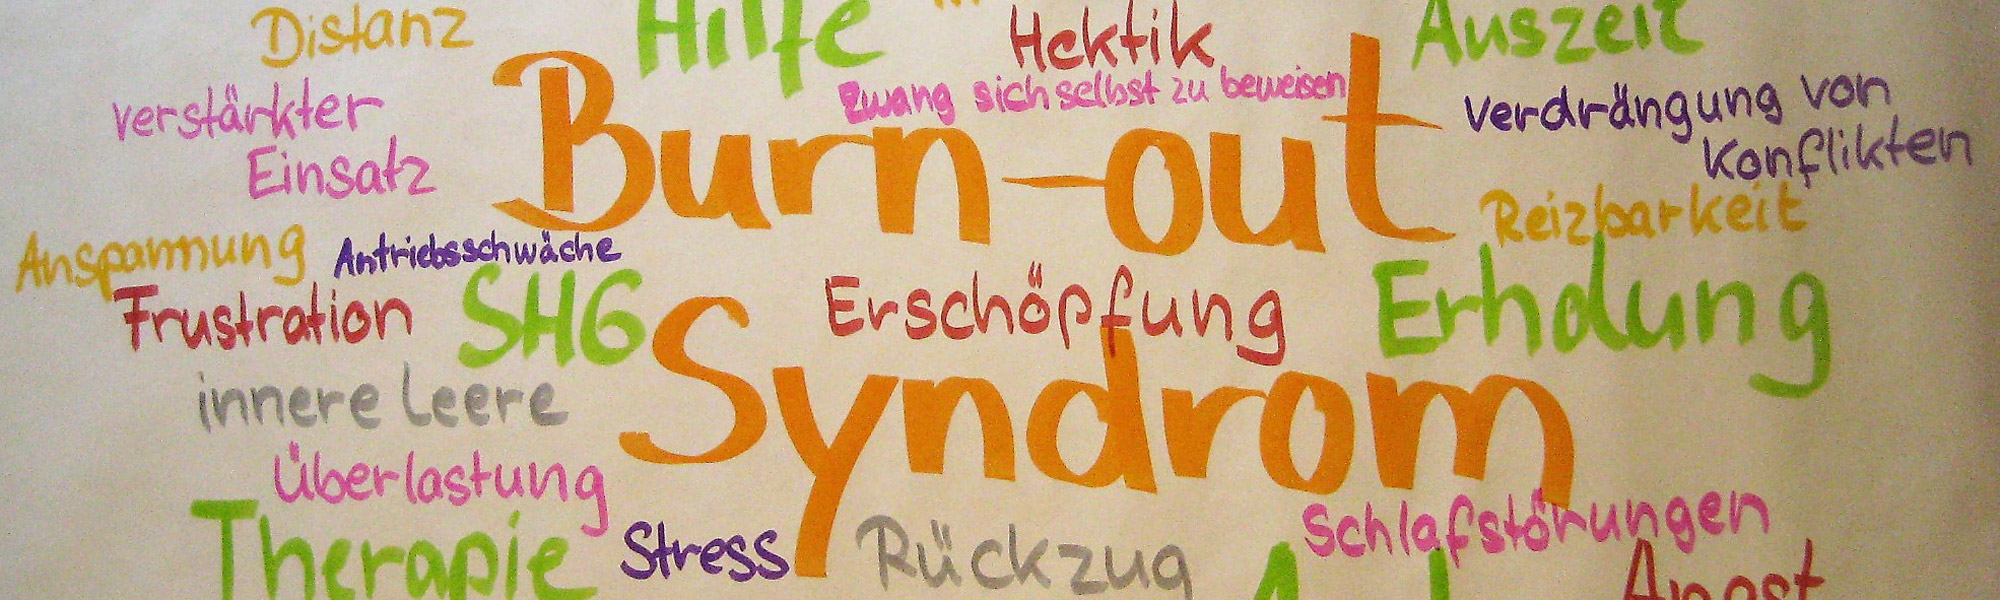 Distanz
Hilfe
Hektik
Auszeit
verstärkter
Einsatz
Zwang sich selbst zu beweisen
Verdrängung von
Konflikten
Burn-out
Reizbarkeit
Anspannung
Antriebsschwäche
Frustration
SHG
Erschöpfung
Erholung
innere Leere
Syndrom
Überlastung
Schlafstörungen
Therapie
Stress
Rückzug
Angst